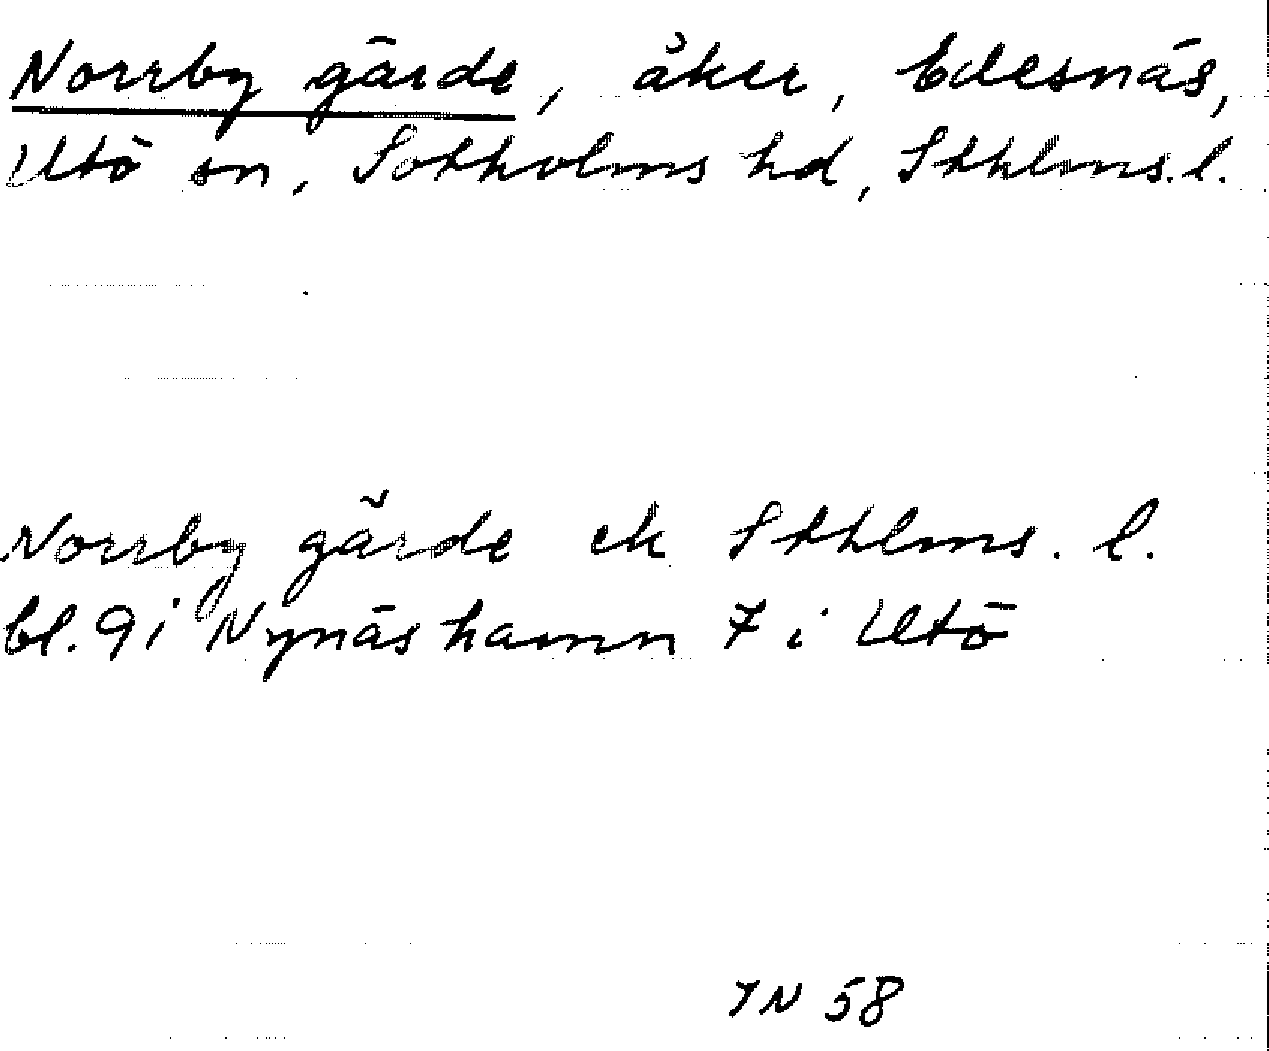 Norrby gärde, åker, Edesnäs,
Utö sn, Sotholms hd, Sthlms. l.
Norrby gärde ek Sthlms. l.
bl. 9 i Nynäshamn 7 i Utö
IN 58